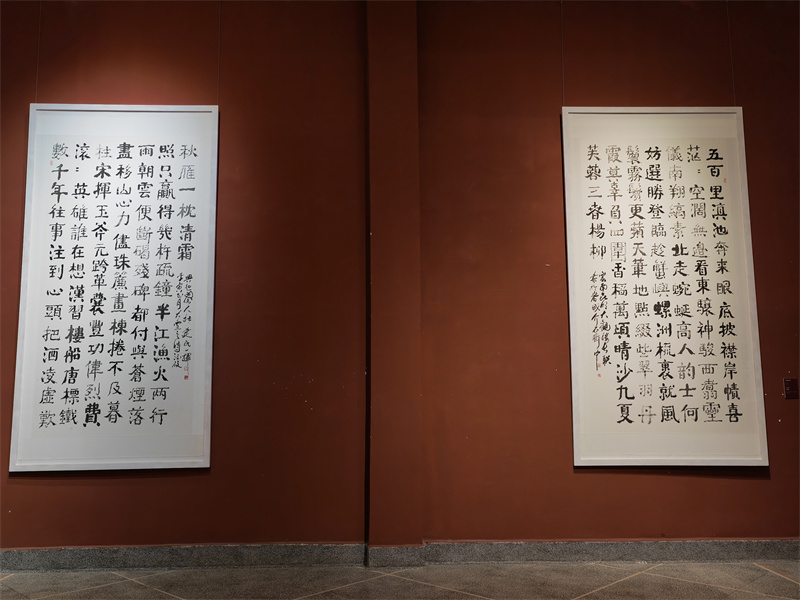 五百里滇池奔来眼底披襟岸幘喜
茫：空闊無邊看東驤神駿西翥靈
儀南翔縞素北走蜿蜒高人韵士何
妨選勝登臨趁蟹嶼螺洲梳裹就風
鬟霧鬢更蘋天葦地點綴些翠羽丹
霞莫辜負四圍香稻萬頃晴沙九夏
芙蓉三春楊柳
雲南昆明大觀樓長聯
數千年往事注到心頭把酒凌虛歎
滾：英雄誰在想漢習樓船唐標鐵
柱宋揮玉斧元跨革囊豐功偉烈費
盡移山心力儘珠簾畫棟捲不及暮
雨朝雲便斷碣殘碑都付與蒼煙落
照只贏得幾杵疏鐘半江漁火兩行
秋雁一枕清霜